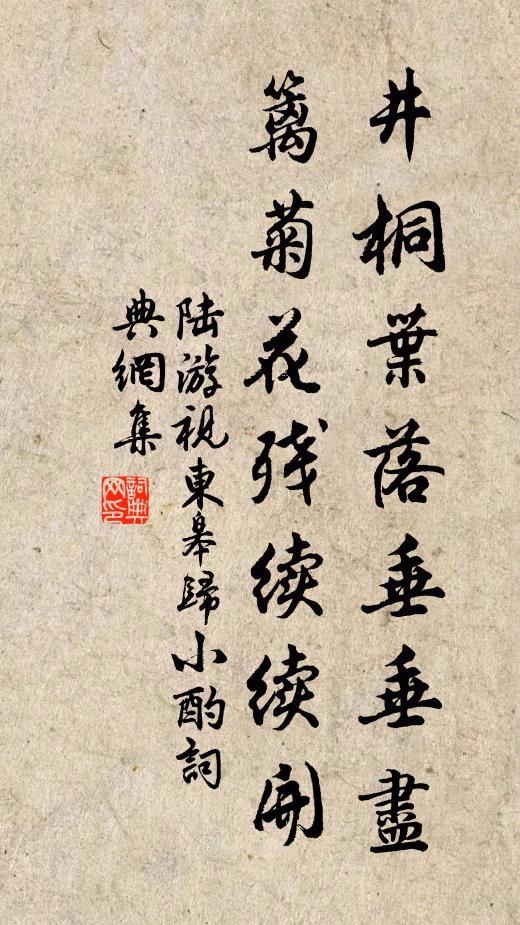 井桐葉落垂垂盡
籬菊花残續續開
陆游視東皋歸小酌詞
典網集
詞典
网印